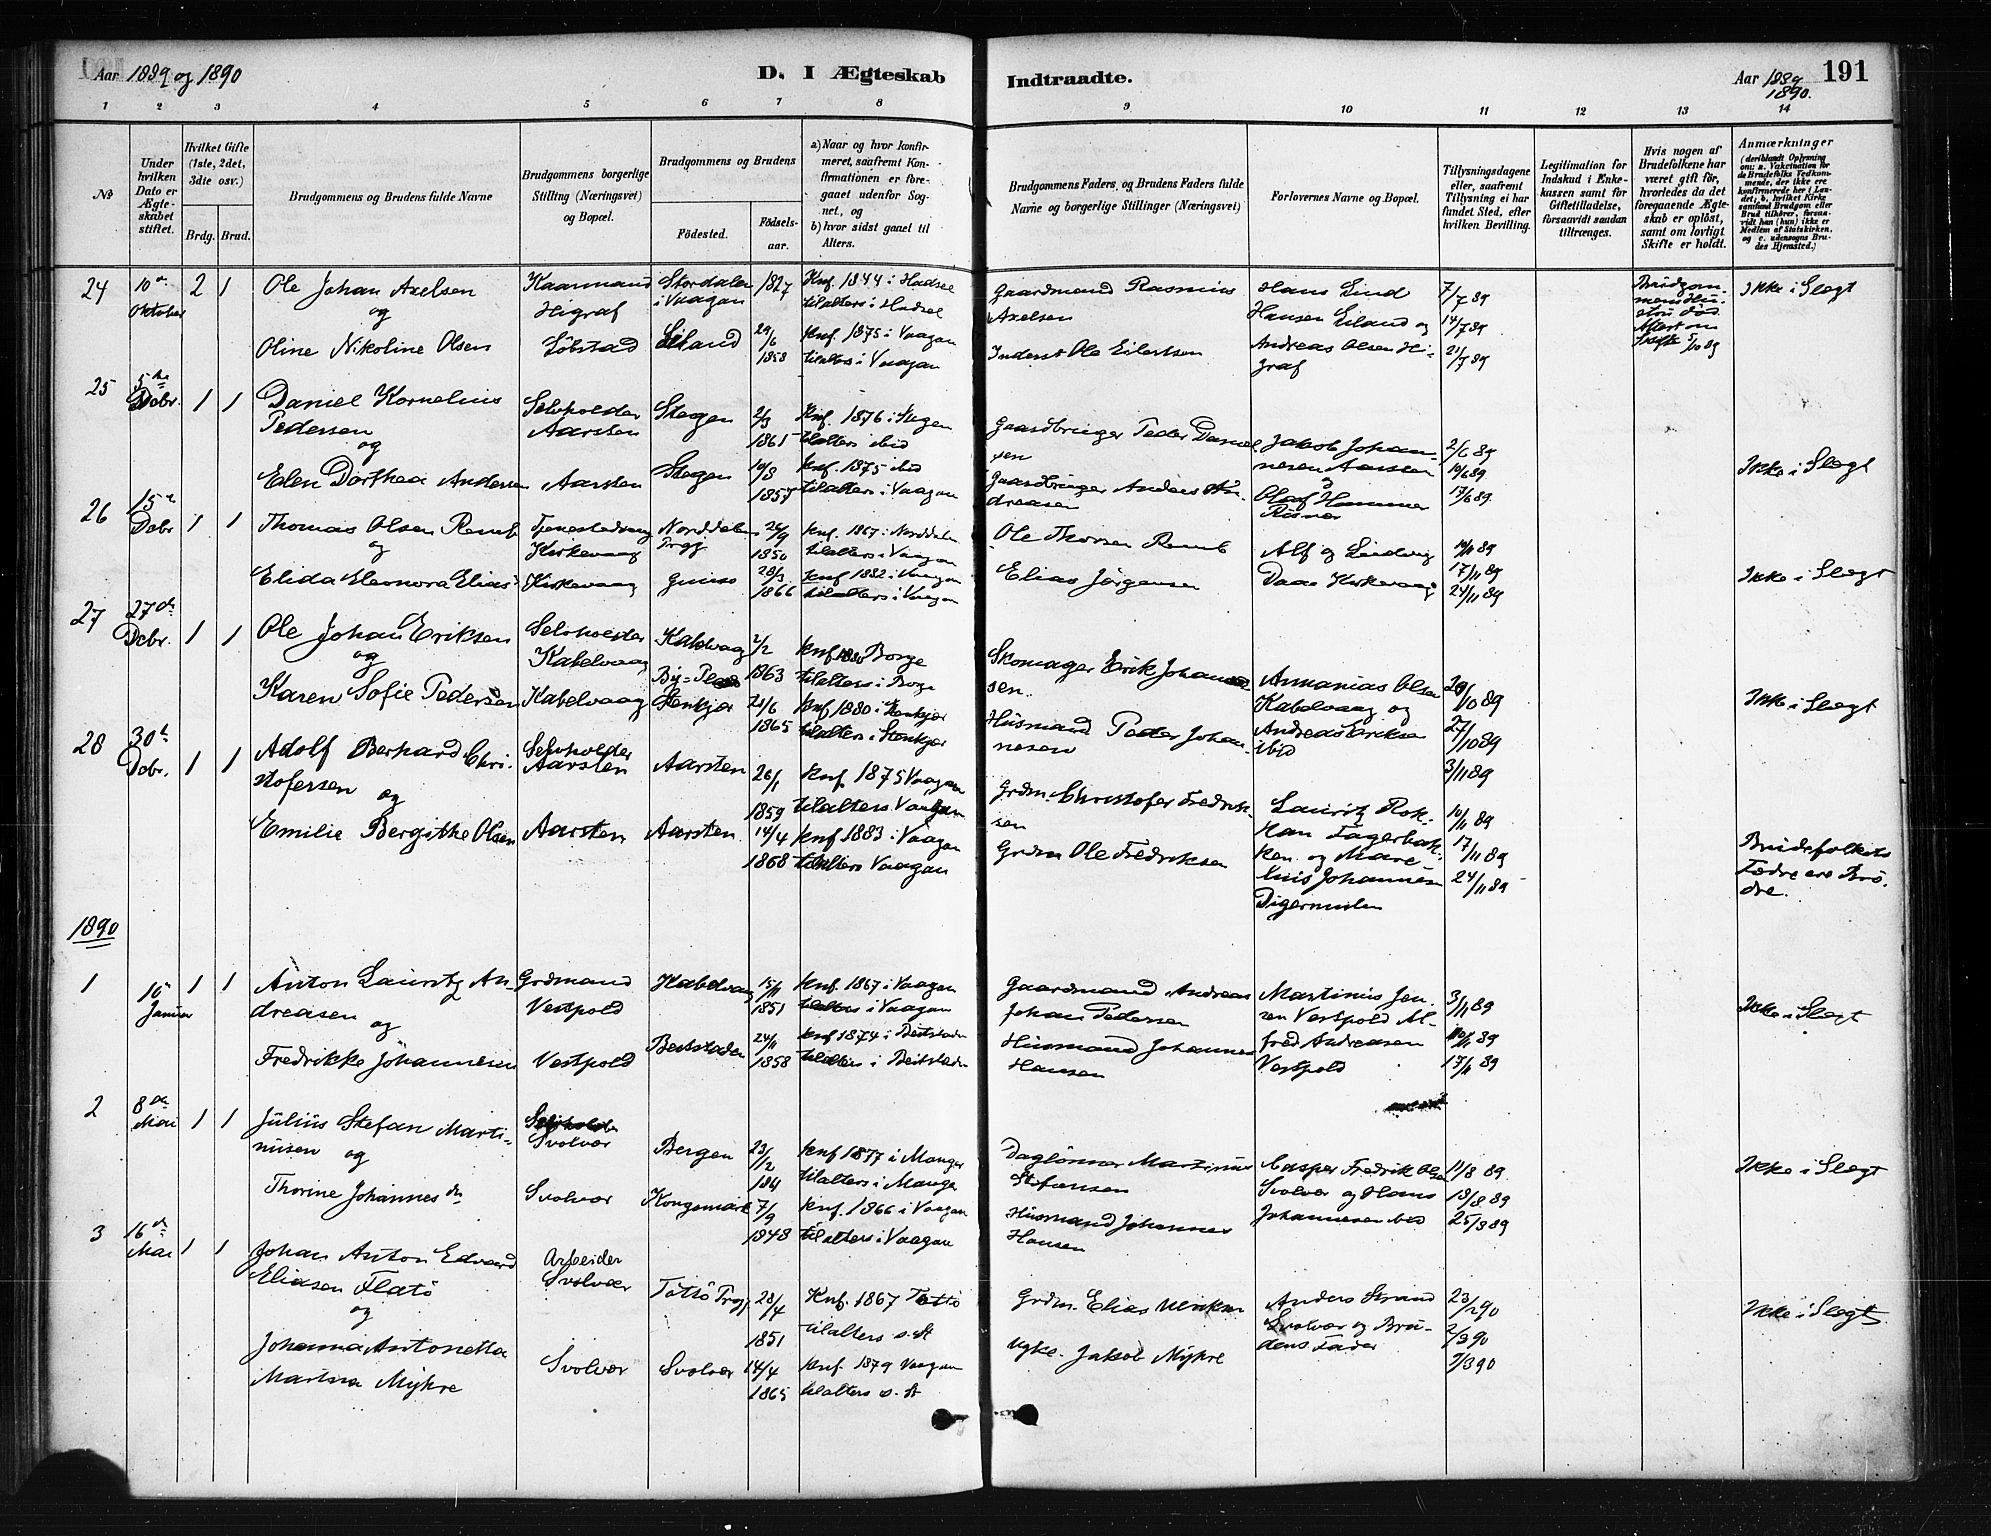 Aar 1889 og 1890
D. I Ægteskab
Indtraadte.
Aar 1889 1890.
191
1 2 3 4 5 6 7 8 9 10 11 12 13 14
No
Under hvilken Dato er Ægteskabet stiftet.
Hvilket Gifte (1ste, 2det, 3dte osv.)
Brdg. Brud.
Brudgommens og Brudens fulde Navne
Brudgommens borgerlige Stilling (Næringsvei) og Bopæl.
Brudgommens og Brudens
Fødested.
Fødselsaar.
a) Naar og hvor konfirmeret, saafremt Konfirmationen er foregaaet udenfor Sognet, og
b) hvor sidst gaaet til Alters.
Brudgommens Faders, og Brudens Faders fulde Navne og borgerlige Stillinger (Næringsvei)
Forlovernes Navne og Bopæl.
Tillysningsdagene eller, saafremt Tillysning ei har fundet Sted, efter hvilken Bevilling.
Legitimation for Indskud i Enkekassen samt for Giftetilladelse, forsaavidt saadan tiltrænges.
Hvis nogen af Brudefolkene har været gift før, hvorledes da det foregaaende Ægteskab er opløst, samt om lovligt Skifte er holdt.
Anmærkninger
(deriblandt Oplysning om: a. Vaksination for de Brudefolks Vedkommende, der ikke ere konfirmerede her i Landet, b. hvilket Kirkesamfund Brudgom eller Brud tilhører, forsaavidt han (hun) ikke er Medlem af Statskirken, og c. udensogns Brudes Hjemsted.)
24 10de Oktober 2 1 Ole Johan Axelsen Kaarmand Higraf Stordalen i Vaagan 1827 Knf. 1844 i Hadsel tilalters i Hadsel
Gaardmand Rasmus Axelsen Hans Lind Hansen Eiland og 7/7 89 14/7 89 Ikke i Slegt
og
Oline Nikoline Olsen Löbstad Eiland 29/6 1858 knf. 1875 i Vaagan tilalters i Vaagan
Inderst Ole Eilertsen Andreas Olsen Higraf 21/7 89
25 5te Dcbr. 1 1 Daniel Kornelius Pedersen Selvholder Aarsten Stegen 2/3 1861 Knf. 1876 i Stegen tilalters ibid
Gaardbruger Peder Danielsen Jakob Johannesen Aarsten 2/6 89 10/6 89 Ikke i Slegt
og
Elen Dorthea Andersen Aarsten Stegen 10/3 1857 knf. 1875 ibid tilalters i Vaagan
Gaardbruger Anders Andreasen Olaf Hammer Risvær 17/6 89
26 15de Dcbr 1 1 Thomas Olsen Remb Tjenestedreng Kirkevaag Norddalen Prgj 26/9 1850 knf. 1867 i Norddalen tilalters i Vaagan
Ole Thorsen Remb Alf og Ludvig 10/11 89 17/11 89 Ikke i Slegt
og
Elida Eleonora Elias Kirkevaag 28/3 1866 knf 1882 i Vaagan tilalters i Vaagan
Elias Jörgensen Daae Kirkevaag 24/11 89
27 27de Dcbr. 1 1 Ole Johan Eriksen Selvholder Kabelvaag Kabelvaag 2/2 1863 knf 1880 Borge tilalters i Borge
Skomager Erik Johansen. Ananias Olsen Kabelvaag og 20/10 89 Ikke i Slegt
og
Karen Sofie Pedersen Kabelvaag Stenkjær 21/6 1865 knf 1880 i Stenkjær tilalters i Stenkjær
Husmand Peder Johannesen Andreas Eriksen ibid 27/10 89 3/11 89
28 30te Dcbr. 1 1 Adolf Berhard Christofersen Selvholder Aarsten Aarsten 26/1 1859 knf 1875 Vaagan tilalters Vaagan
Grdm. Christofer Fredriksen Lauritz Rokkan Fagerbakken og 10/11 89 17/11 89
og
Emilie Bergithe Olsen Aarsten Aarsten 14/4 1868 knf 1883 i Vaagan tilalters Vaagan
Grdm Ole Fredriksen Marelius Johannesen Digermulen 24/11 89 Brudefolkets Fædre ere Brödre.
1890
1 16 Januar 1 1 Anton Lauritz Andreasen Grdmand Vestpold Kabelvaag 15/11 1851 knf. 1867 i Vaagan tilalters i Vaagan
Gaardmand Andreas Johan Pedersen Martinus Jensen Vestpold Al- 3/11 89 Ikke i Slegt
og
Fredrikke Johannesen Vestpold Beitstaden 24/11 1858 knf 1874 i Beitstaden tilalters i Beitstaden
Husmand Johannes Hansen fred Andreasen Vestpold 10/11 89 17/11 89
2 8de Mai 1 1 Julius Stefan Martinusen Svolvær Bergen 23/12 knf 1877 i Manger tilalters i Manger
Daglönner Martinus Stefansen Casper Fredrik Olsen Svolvær og Hans 11/8 89 18/8 89 Ikke i Slegt
og
Thorine Johannesdn Svolvær Kongsmark 7/9 1848 knf. 1866 i Vaagan tilalters i Vaagan
Husmand Johannes Hansen Johannesen ibid 25/8 89
3 16de Mai 1 1 Johan Anton Edvard Eliasen Flatö Arbeider Svolvær Töttö Prgj 28/4 1851 Knf. 1867 Töttö tilalters s. St
Grdm. Elias Anders Strand Svolvær og Bru- 23/2 90 2/3 90 Ikke i Slegt
og
Johanna Antonetta Martina Myhre Svolvær Svolvær 14/4 1865 knf. 1879 Vaagan tilalters s. St
Jakob Myhre dens Fader 9/3 90
Brudgommens Hustru död